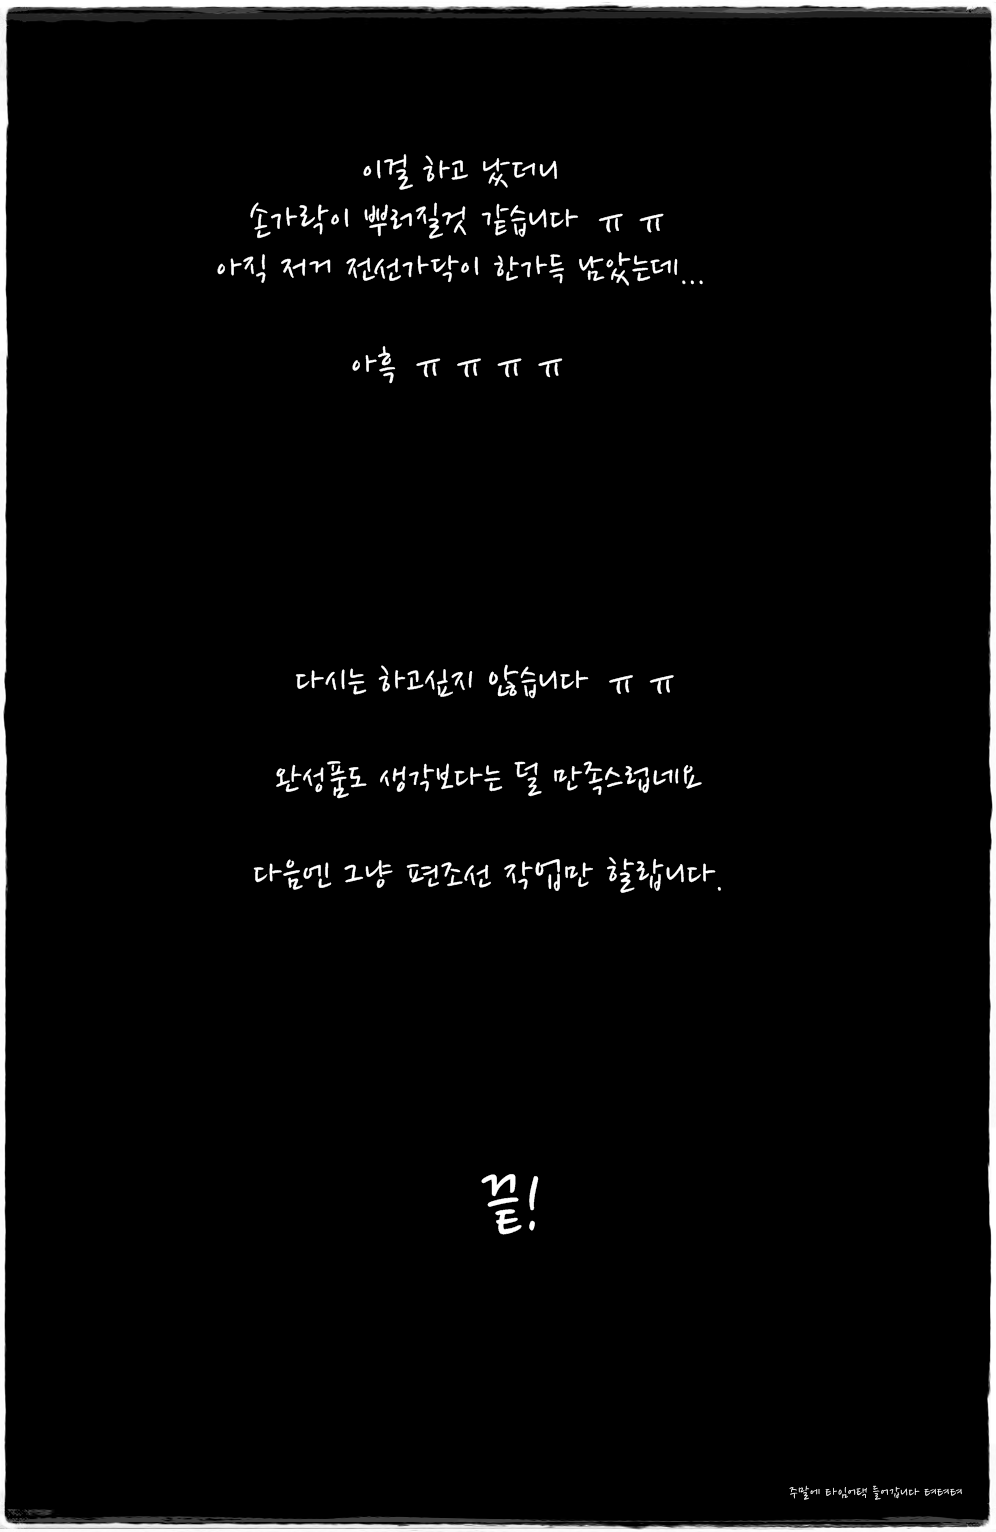 이걸 하고 났더니
손가락이 뿌러질것 같습니다 ㅠ ㅠ
아직 저거 전선가닥이 한가득 남았는데...
아흑 ㅠ ㅠ ㅠ ㅠ
다시는 하고싶지 않습니다 ㅠ ㅠ
완성품도 생각보다는 덜 만족스럽네요
다음엔 그냥 편조선 작업만 할랍니다.
끝!
주말에 타임어택 들어갑니다 텨텨텨